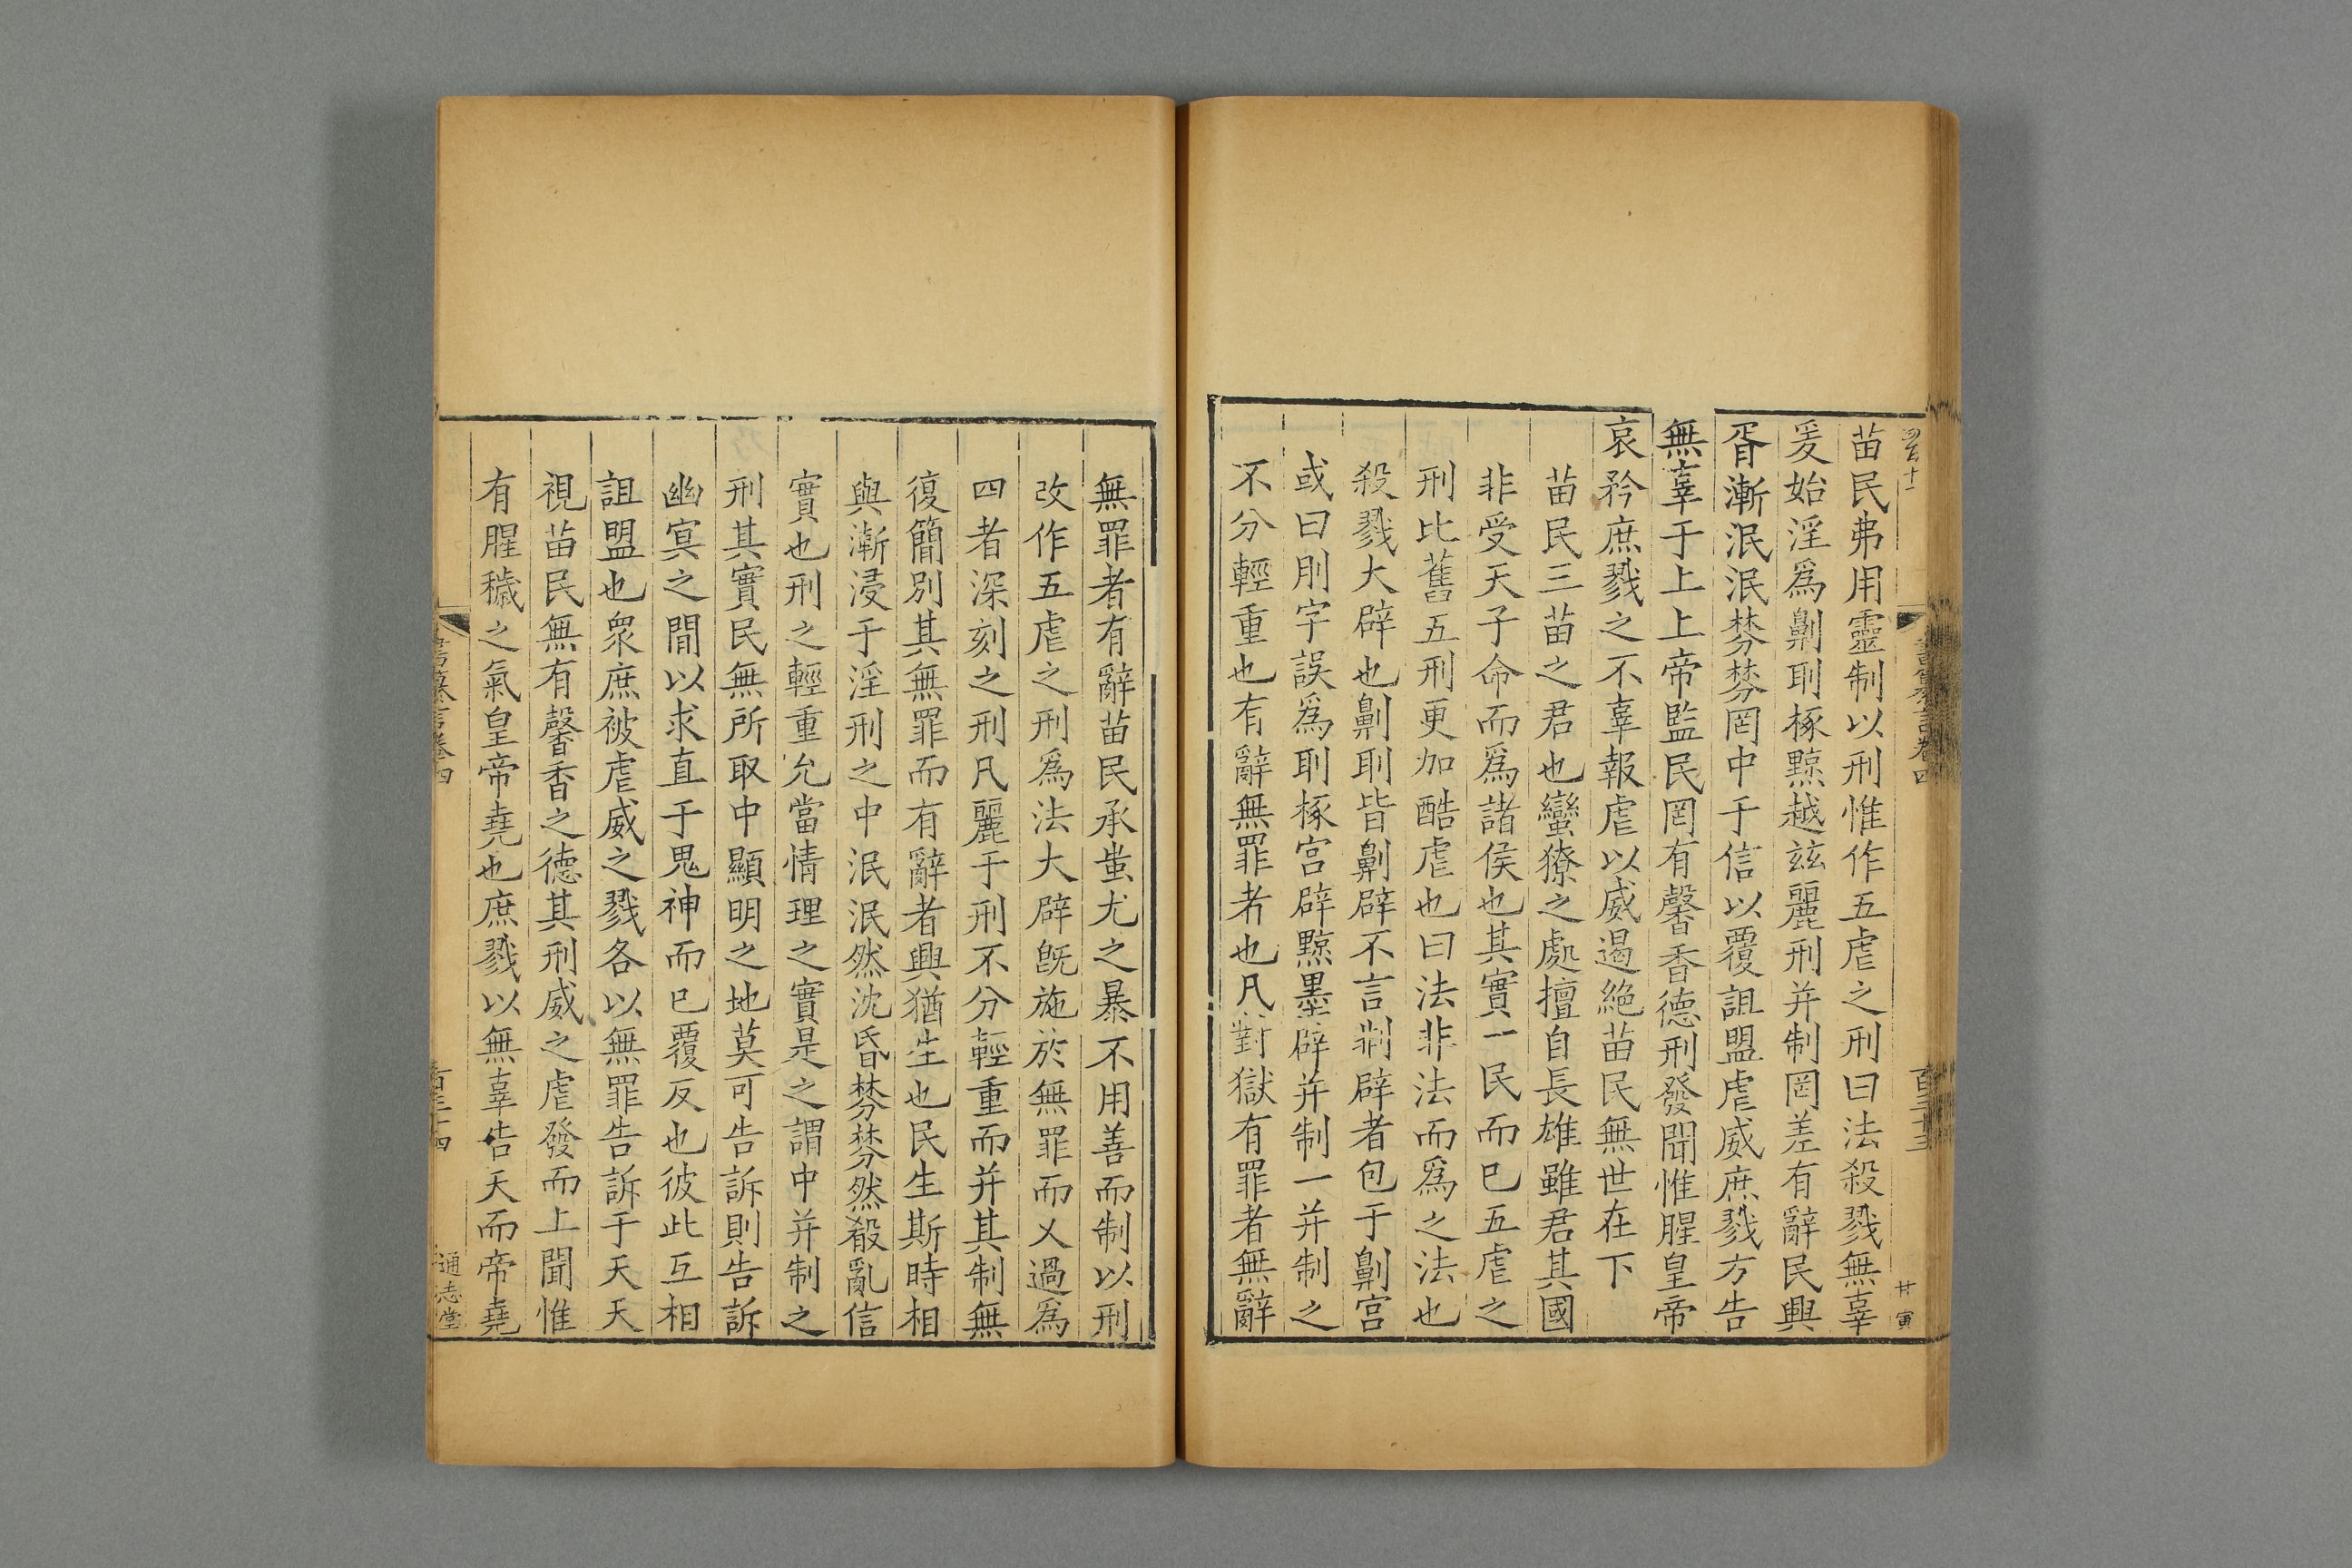 苗民弗用靈制以刑惟作五虐之刑曰法殺戮無辜
爰始淫爲劓刵椓黥越兹麗刑并制罔差有辭民興
胥漸泯泯棼棼罔中于信以覆詛盟虐威庶戮方告
無辜于上上帝監民罔有馨香德刑發聞惟腥皇帝
哀矜庶戮之不辜報虐以威遏絶苗民無世在下
苗民三苗之君也蠻獠之處擅自長雄雖君其國
非受天子命而爲諸侯也其實一民而已五虐之
刑比舊五刑更加酷虐也曰法非法而爲之法也
殺戮大辟也劓刵皆劓辟不言剕辟者包于劓宫
或曰刖字誤爲刵椓宫辟黥墨辟并制一并制之
不分輕重也有辭無罪者也凡對獄有罪者無辭
無罪者有辭苗民承蚩尤之暴不用善而制以刑
改作五虐之刑爲法大辟旣施於無罪而乂過爲
四者深刻之刑凡麗于刑不分輕重而并其制無
復簡別其無罪而有辭者興猶生也民生斯時相
與漸浸于淫刑之中泯泯然沈昏棼棼然殽亂信
實也刑之輕重允當情理之實是之謂中并制之
刑其實民無所取中顯明之地莫可告訴則告訴
幽冥之間以求直于鬼神而已覆反也彼此互相
詛盟也衆庶被虐威之戮各以無罪告訴于天天
視苗民無有馨香之德其刑威之虐發而上聞惟
有腥穢之氣皇帝堯也庶戮以無辜告天而帝堯
通志堂